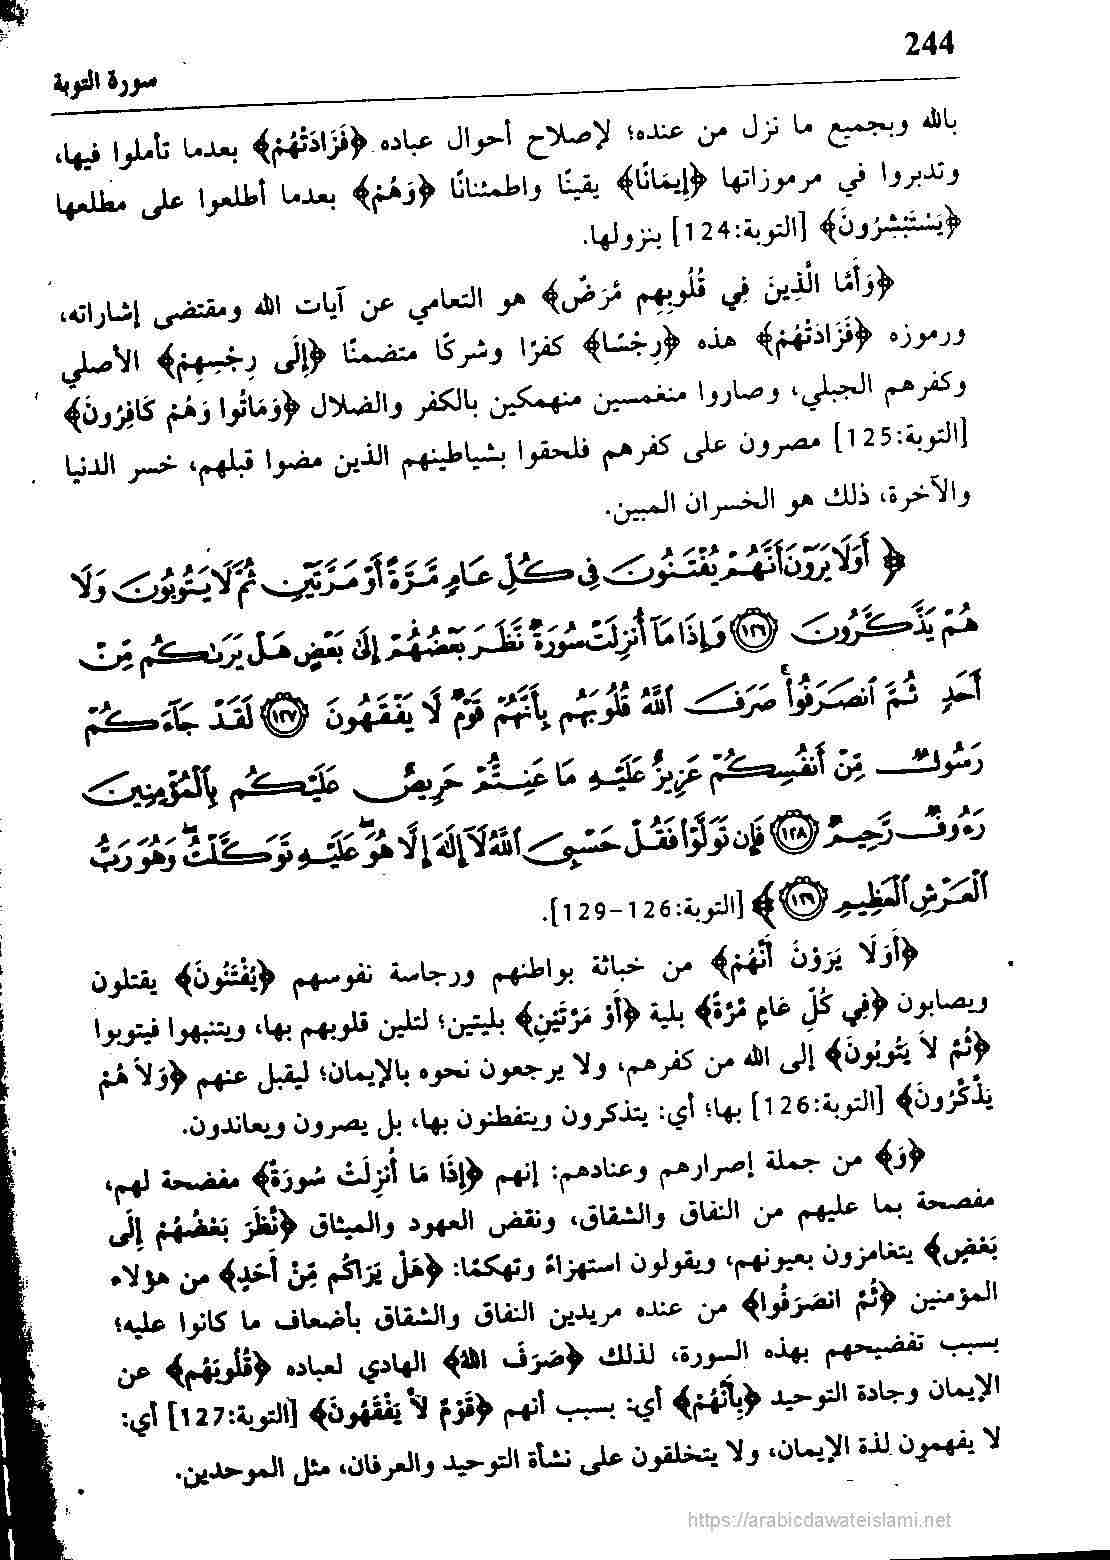 244
سورة التوبة
بالله وبجميع ما نزل من عنده؛ لإصلاح أحوال عباده ﴿فَزَادَتْهُمْ﴾ بعدما تأملوا فيها،
وتدبروا في مرموزاتها ﴿إِيمَانًا﴾ يقينًا واطمئنانًا ﴿وَهُمْ﴾ بعدما أطلعوا على مطلعها
﴿يَسْتَبْشِرُونَ﴾ [التوبة:124] بنزولها.
﴿وَأَمَّا الَّذِينَ فِي قُلُوبِهِم مَّرَضٌ﴾ هو التعامي عن آيات الله ومقتضى إشاراته،
ورموزه ﴿فَزَادَتْهُمْ﴾ هذه ﴿رِجْسًا﴾ كفرًا وشركًا متضمنًا ﴿إِلَى رِجْسِهِمْ﴾ الأصلي
وكفرهم الجبلي، وصاروا منغمسين منهمكين بالكفر والضلال ﴿وَمَاتُوا وَهُمْ كَافِرُونَ﴾
[التوبة:125] مصرون على كفرهم فلحقوا بشياطينهم الذين مضوا قبلهم، خسر الدنيا
والآخرة، ذلك هو الخسران المبين.
﴿ أَوَلَا يَرَوْنَ أَنَّهُمْ يُفْتَنُونَ فِي كُلِّ عَامٍ مَّرَّةً أَوْ مَرَّتَيْنِ ثُمَّ لَا يَتُوبُونَ وَلَا
هُمْ يَذَّكَّرُونَ ١٢٦ وَإِذَا مَآ أُنزِلَتْ سُورَةٌ نَّظَرَ بَعْضُهُمْ إِلَىٰ بَعْضٍ هَلْ يَرَىٰكُم مِّنْ
أَحَدٍ ثُمَّ ٱنصَرَفُوا۟ صَرَفَ ٱللَّهُ قُلُوبَهُم بِأَنَّهُمْ قَوْمٌ لَّا يَفْقَهُونَ ١٢٧ لَقَدْ جَآءَكُمْ
رَسُولٌ مِّنْ أَنفُسِكُمْ عَزِيزٌ عَلَيْهِ مَا عَنِتُّمْ حَرِيصٌ عَلَيْكُم بِٱلْمُؤْمِنِينَ
رَءُوفٌ رَّحِيمٌ ١٢٨ فَإِن تَوَلَّوْا۟ فَقُلْ حَسْبِيَ ٱللَّهُ لَآ إِلَٰهَ إِلَّا هُوَ ۖ عَلَيْهِ تَوَكَّلْتُ ۖ وَهُوَ رَبُّ
ٱلْعَرْشِ ٱلْعَظِيمِ ١٢٩ ﴾ [التوبة:126-129].
﴿أَوَلَا يَرَوْنَ أَنَّهُمْ﴾ من خباثة بواطنهم ورجاسة نفوسهم ﴿يُفْتَنُونَ﴾ يقتلون
ويصابون ﴿فِي كُلِّ عَامٍ مَّرَّةً﴾ بلية ﴿أَوْ مَرَّتَيْنِ﴾ بليتين؛ لتلين قلوبهم بها، ويتنبهوا فيتوبوا
﴿ثُمَّ لاَ يَتُوبُونَ﴾ إلى الله من كفرهم، ولا يرجعون نحوه بالإيمان؛ ليقبل عنهم ﴿وَلاَ هُمْ
يَذَّكَّرُونَ﴾ [التوبة:126] بها؛ أي: يتذكرون ويتفطنون بها، بل يصرون ويعاندون.
﴿وَ﴾ من جملة إصرارهم وعنادهم: إنهم ﴿إِذَا مَا أُنزِلَتْ سُورَةٌ﴾ مفضحة لهم،
مفصحة بما عليهم من النفاق والشقاق، ونقض العهود والميثاق ﴿نَّظَرَ بَعْضُهُمْ إِلَى
بَعْضٍ﴾ يتغامزون بعيونهم، ويقولون استهزاءً وتهكمًا: ﴿هَلْ يَرَاكُم مِّنْ أَحَدٍ﴾ من هؤلاء
المؤمنين ﴿ثُمَّ انصَرَفُوا﴾ من عنده مريدين النفاق والشقاق بأضعاف ما كانوا عليه؛
بسبب تفضيحهم بهذه السورة، لذلك ﴿صَرَفَ اللهُ﴾ الهادي لعباده ﴿قُلُوبَهُم﴾ عن
الإيمان وجادة التوحيد ﴿بِأَنَّهُمْ﴾ أي: بسبب أنهم ﴿قَوْمٌ لاَّ يَفْقَهُونَ﴾ [التوبة:127] أي:
لا يفهمون لذة الإيمان، ولا يتخلقون على نشأة التوحيد والعرفان، مثل الموحدين.
https://arabicdawateislami.net